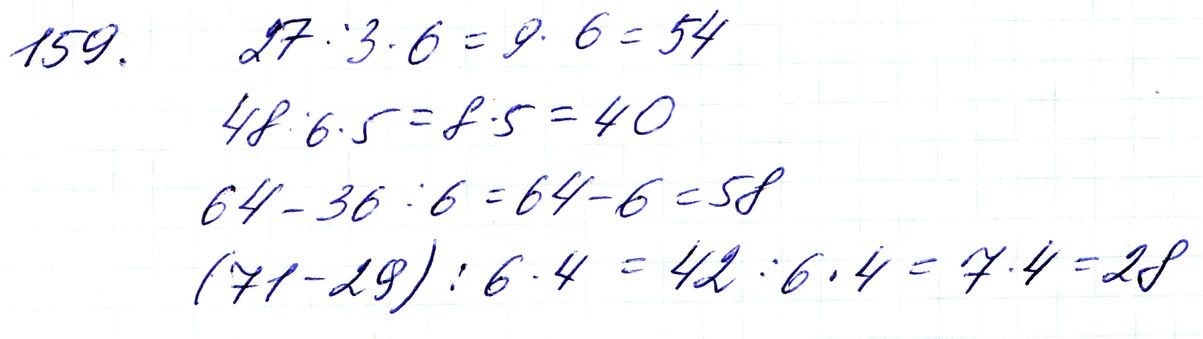 159. 27 : 3 · 6 = 9 · 6 = 54
48 : 6 · 5 = 8 · 5 = 40
64 - 36 : 6 = 64 - 6 = 58
(71 - 29) : 6 · 4 = 42 : 6 · 4 = 7 · 4 = 28